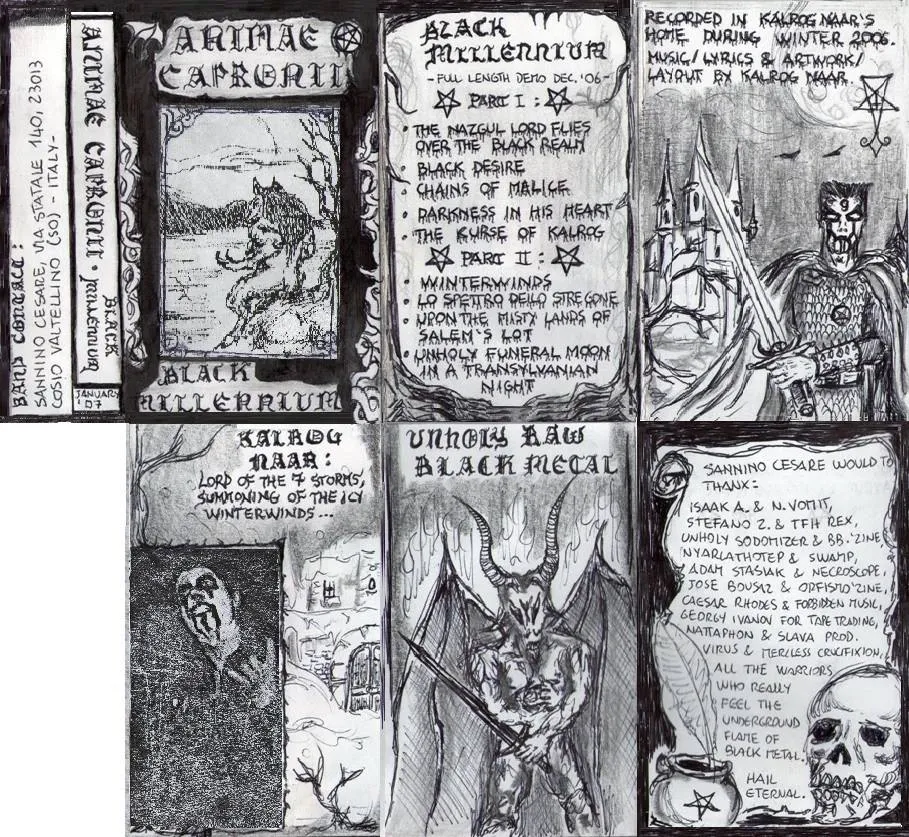 BAND CONTACT:
SANNINO CESARE, VIA STATALE 140, 23013
COSIO VALTELLINO (SO) - ITALY-
ANIMAE CAPRONII • BLACK
MILLENNIUM
JANUARY
'07
ANIMAE
CAPRONII
BLACK
MILLENNIUM
BLACK
MILLENNIUM
-FULL LENGTH DEMO DEC. '06-
PART I:
• THE NAZGUL LORD FLIES
OVER THE BLACK REALM
• BLACK DESIRE
• CHAINS OF MALICE
• DARKNESS IN HIS HEART
• THE KURSE OF KALROG
PART II:
• WINTERWINDS
• LO SPETTRO DELLO STREGONE
• UPON THE MISTY LANDS OF
SALEM'S LOT
• UNHOLY FUNERAL MOON
IN A TRANSYLVANIAN
NIGHT
RECORDED IN KALROG NAAR'S
HOME DURING WINTER 2006.
MUSIC/LYRICS & ARTWORK/
LAYOUT BY KALROG NAAR.
KALROG
NAAR:
LORD OF THE 7 STORMS,
SUMMONING OF THE ICY
WINTERWINDS...
UNHOLY RAW
BLACK METAL
SANNINO CESARE WOULD TO
THANX:
ISAAK A. & N. VOMIT,
STEFANO Z. & TFH REX,
UNHOLY SODOMIZER & BB. 'ZINE,
NYARLATHOTEP & SWAMP,
ADAM STASIAK & NECROSCOPE,
JOSE BOUSAZ & ORFISMO 'ZINE,
CAESAR RHODES & FORBIDDEN MUSIC,
GEORGY IVANOV FOR TAPE TRADING,
NATTAPHON & SLAVA PROD.
VIRUS & MERCILESS CRUCIFIXION,
ALL THE WARRIORS
WHO REALLY
FEEL THE
UNDERGROUND
FLAME OF
BLACK METAL.
HAIL
ETERNAL.